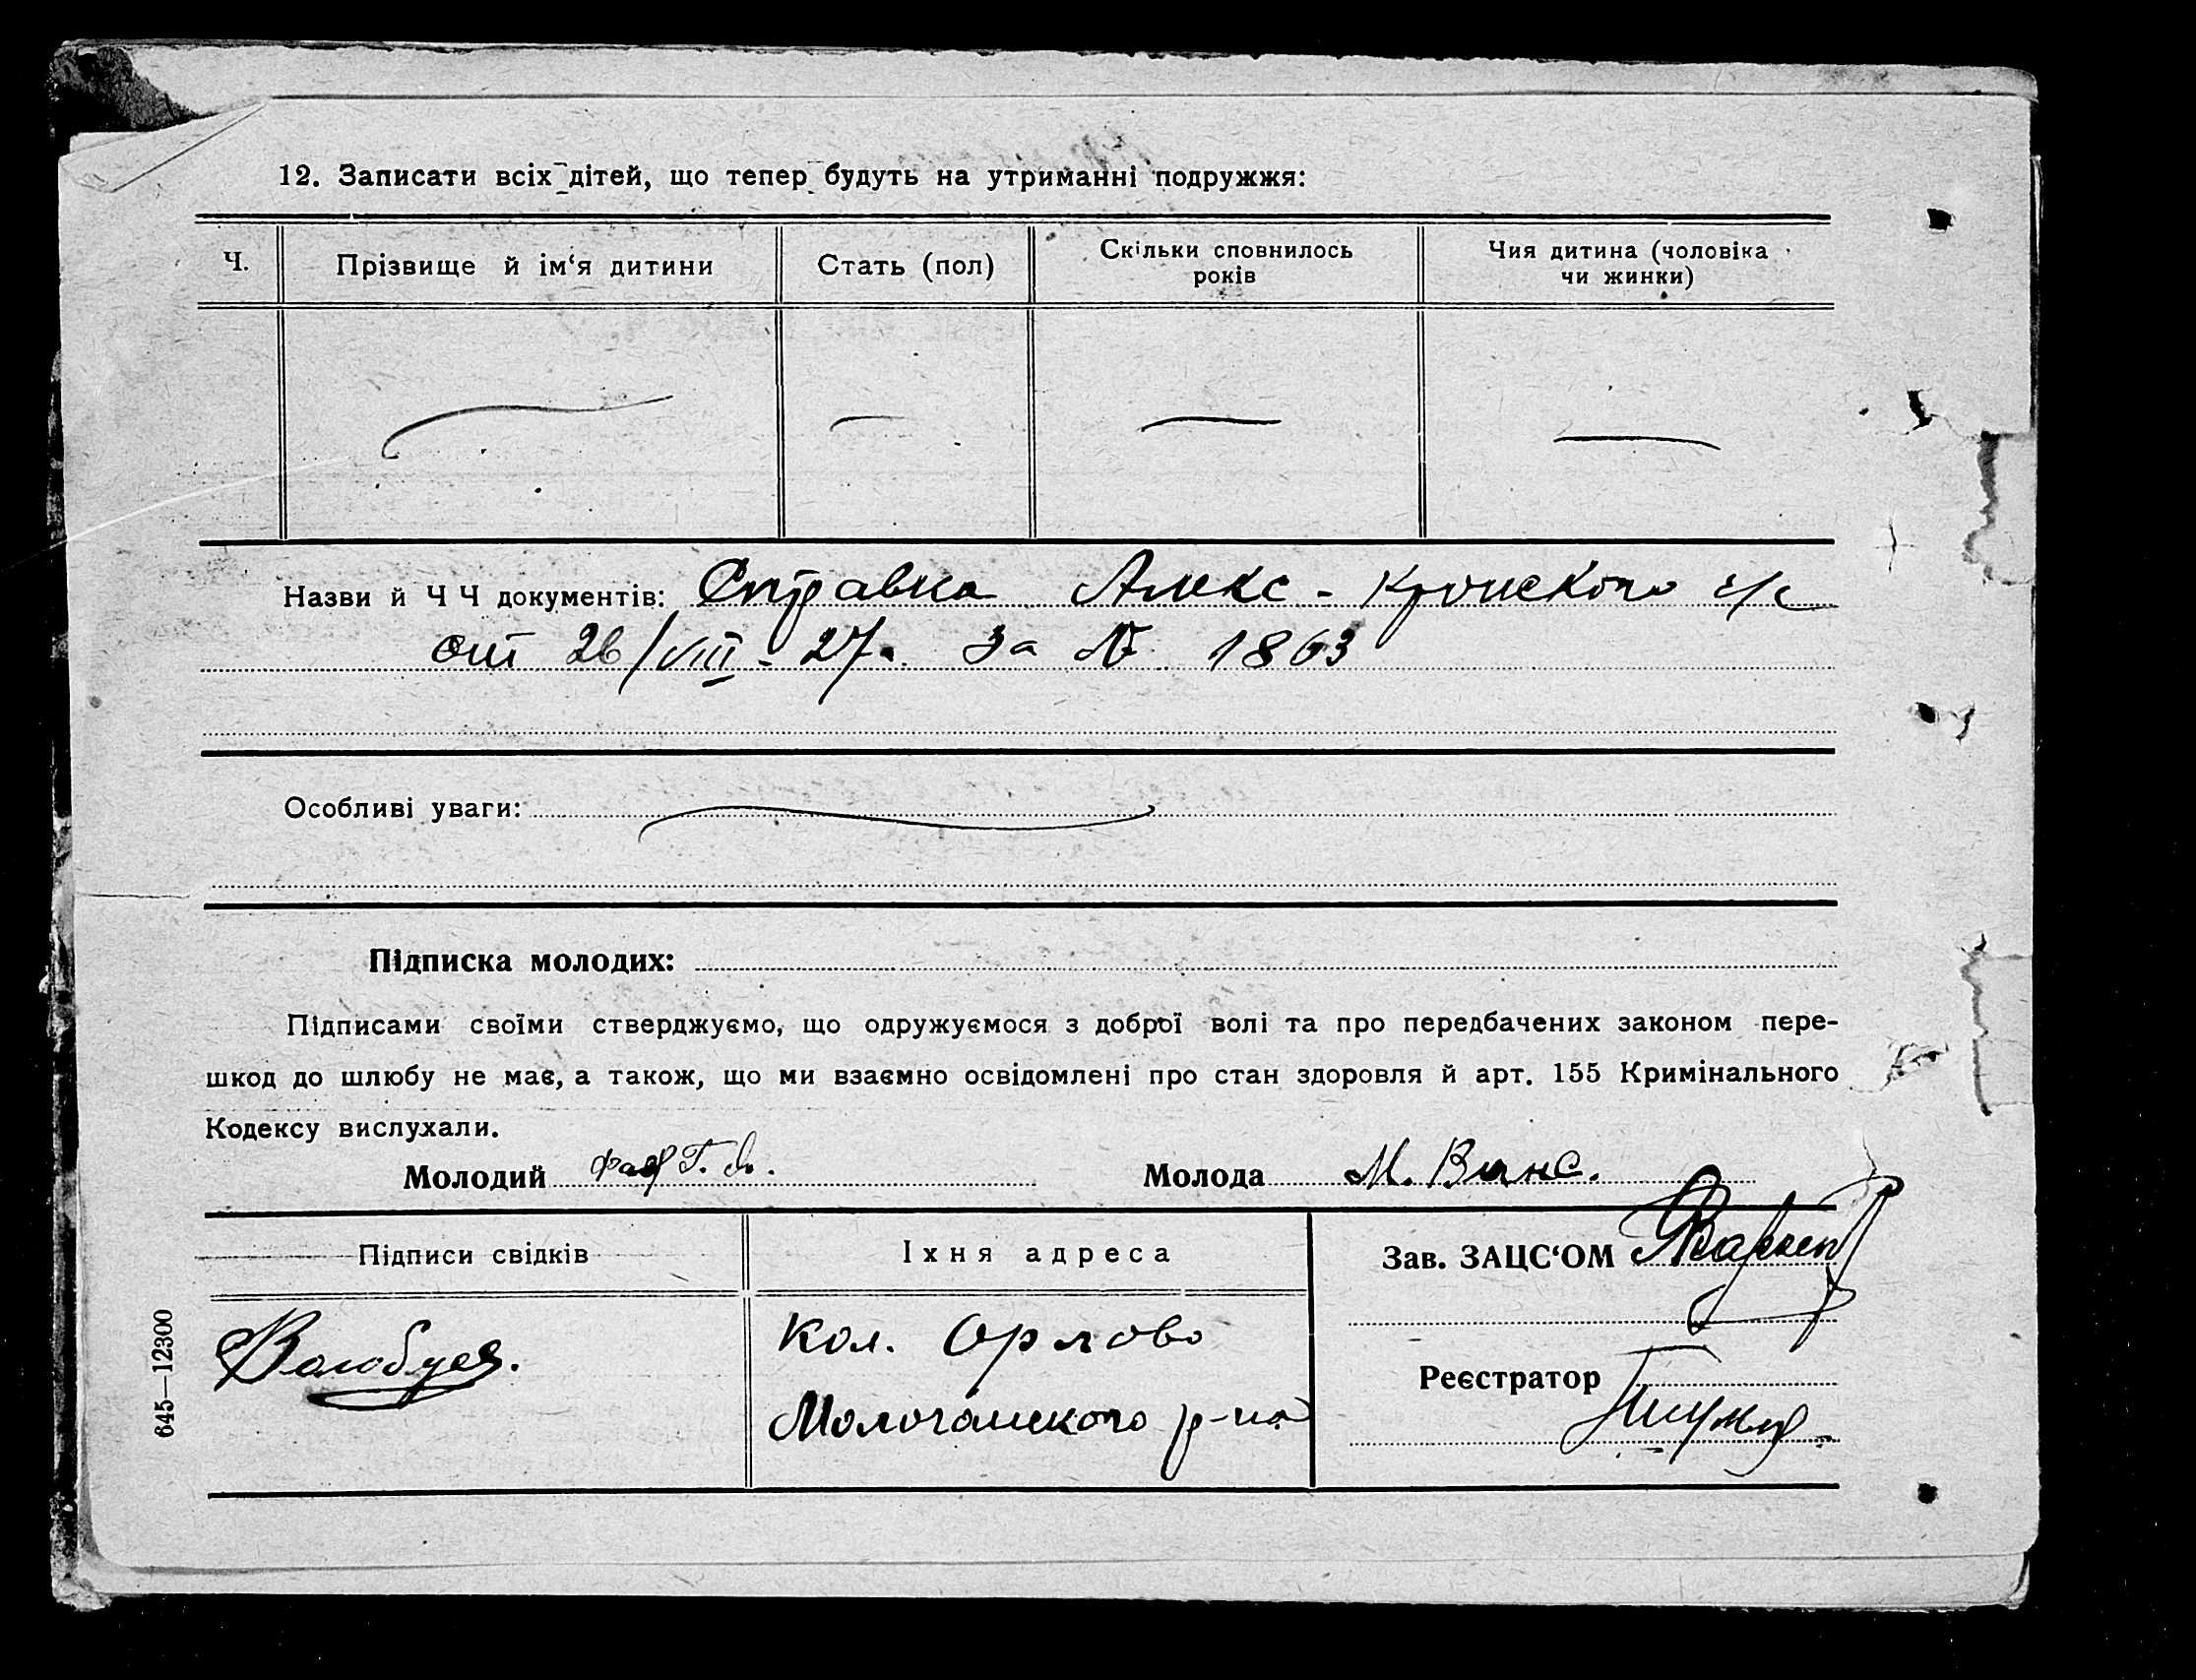 12. Записати всіх дітей, що тепер будуть на утриманні подружжя:
Ч.
Прізвище й ім‘я дитини
Стать (пол)
Скільки сповнилось
років
Чия дитина (чоловіка
чи жинки)
Назви й Ч Ч документів: Справка Алекс-Кронского с/с
от 26/VIII-27. за № 1863
Особливі уваги:
Підписка молодих:
Підписами своїми стверджуємо, що одружуємося з доброї волі та про передбачених законом пере-
шкод до шлюбу не має, а також, що ми взаємно освідомлені про стан здоровля й арт. 155 Кримінального
Кодексу вислухали.
Молодий
Молода М. Винс.
Підписи свідків
Іхня адреса
Зав. ЗАЦС‘ОМ
Кол. Орлово
Молочанского р-на
Реєстратор
645—12300